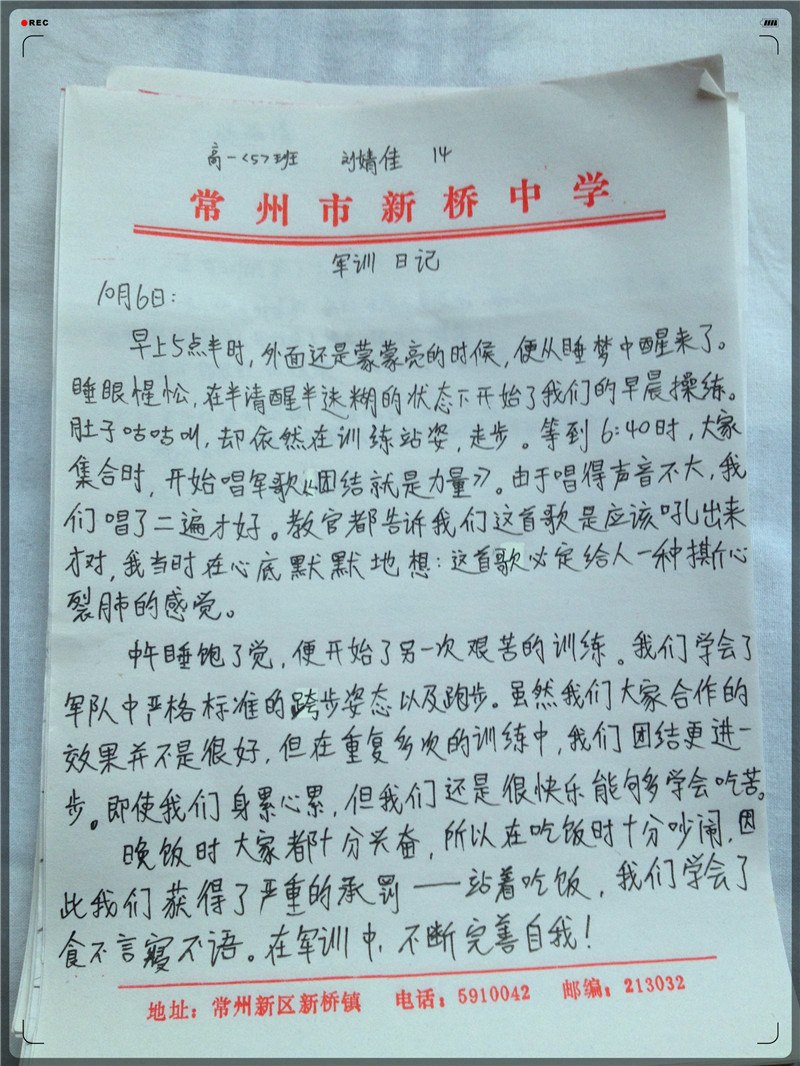 REC
高一<5>班 刘婧佳 14
常州市新桥中学
军训 日记
10月6日:
早上5点半时,外面还是蒙蒙亮的时候,便从睡梦中醒来了。
睡眼惺忪,在半清醒半迷糊的状态下开始了我们的早晨操练。
肚子咕咕叫,却依然在训练站姿,走步。等到6:40时,大家
集合时,开始唱军歌《团结就是力量》。由于唱得声音不大,我
们唱了二遍才好。教官都告诉我们这首歌是应该吼出来
才对,我当时在心底默默地想:这首歌必定给人一种撕心
裂肺的感觉。
中午睡饱了觉,便开始了另一次艰苦的训练。我们学会了
军队中严格标准的跨步姿态以及跑步。虽然我们大家合作的
效果并不是很好,但在重复多次的训练中,我们团结更进一
步。即使我们身累心累,但我们还是很快乐能够多学会吃苦。
晚饭时大家都十分兴奋,所以在吃饭时十分吵闹,因
此我们获得了严重的承罚——站着吃饭,我们学会了
食不言寝不语。在军训中,不断完善自我!
地址:常州新区新桥镇 电话:5910042 邮编:213032